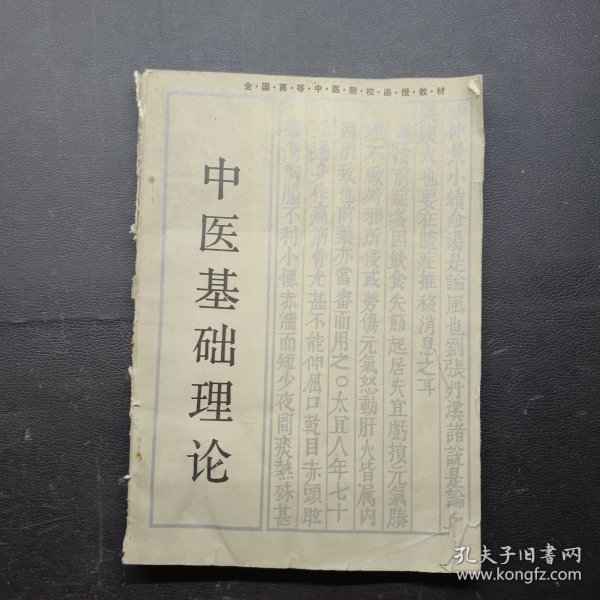 全·国·高·等·中·医·院·校·函·授·教·材
中医基础理论
張仲景小續命湯是論風也劉張丹溪諸説是論
攻也要在臨症推移消息之耳
按前症多因飲食失節起居失宜虧損元氣腠
遂不成外邪所侵或勞傷元氣怒動肝火皆屬内
因所致也前藥亦當審而用之○太宜人年七十
作痛筋骨尤甚不能伸屈口乾目赤頭眩
不利小便赤濇而短少夜間𤍠熱殊甚
孔夫子旧书网
www.kongfz.com